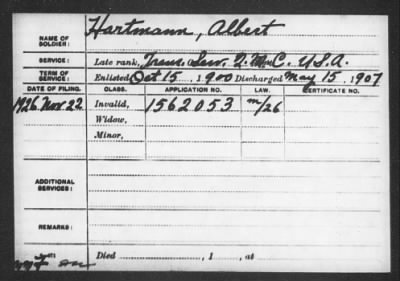 NAME OF SOLDIER: Hartmann, Albert
SERVICE: Late rank, Trans. Serv. Q.M.C. U.S.A.
TERM OF SERVICE: Enlisted Oct 15, 1900 Discharged May 15, 1907
DATE OF FILING. CLASS. APPLICATION NO. LAW. CERTIFICATE NO.
1926 Nov. 22. Invalid, 1562053 m/26
Widow,
Minor,
ADDITIONAL SERVICES:
REMARKS:
Died , 1 , at